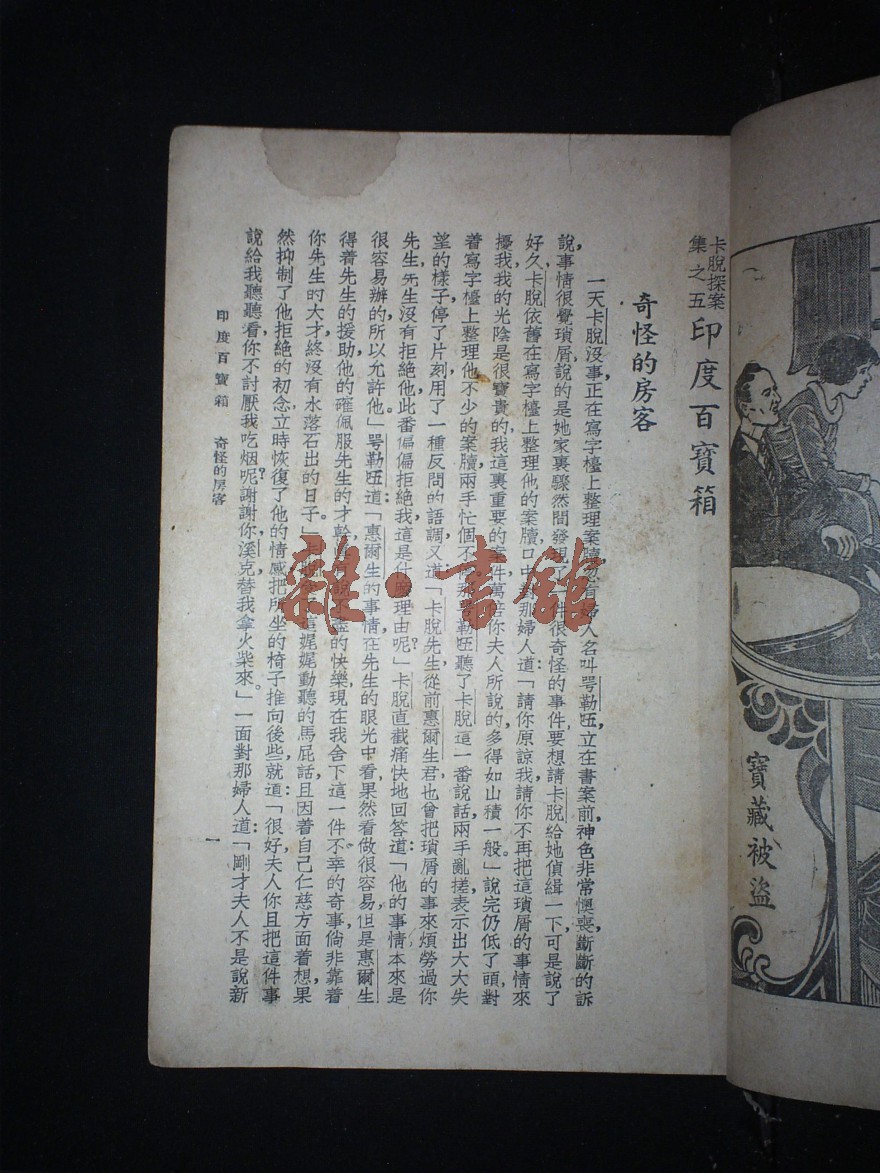 卡脫探案
集之五
印度百寶箱
奇怪的房客
一天卡脫沒事正在寫字檯上整理案牘忽有婦人名叫咢勒瓩,立在書案前,神色非常懊喪,斷斷的訴
說,事情很覺瑣屑說的是她家裏驟然間發現一件很奇怪的事件要想請卡脫給她偵緝一下可是說了
好久卡脫依舊在寫字檯上整理他的案牘口中對那婦人道:「請你原諒我,請你不再把這瑣屑的事情來
擾我,我的光陰是很寶貴的,我這裏重要的案件萬倍你夫人所說的,多得如山積一般。」說完仍低了頭,對
着寫字檯上整理他不少的案牘,兩手忙個不停那咢勒瓩聽了卡脫這一番說話,兩手亂搓表示出大大失
望的樣子,停了片刻,用了一種反問的語調又道:「卡脫先生,從前惠爾生君也曾把瑣屑的事來煩勞過你
先生,先生沒有拒絕他,此番偏偏拒絕我,這是什麼理由呢?」卡脫直截痛快地回答道:「他的事情本來是
很容易辦的,所以允許他。」咢勒瓩道:「惠爾生的事情,在先生的眼光中看果然看做很容易,但是惠爾生
得着先生的援助,他的確佩服先生的才幹,有說不盡的快樂,現在我舍下這一件不幸的奇事,倘非靠着
你先生的大才,終沒有水落石出的日子。」這娓娓動聽的馬屁話,且因着自己仁慈方面着想,果
然抑制了他拒絕的初念,立時恢復了他的情感把所坐的椅子推向後些,就道:「很好,夫人,你且把這件事
說給我聽聽看,你不討厭我吃烟呢?謝謝你,溪克,替我拿火柴來。」一面對那婦人道:「剛才夫人不是說新
印度百寶箱 奇怪的房客
一
寶藏被盜
雜·書館